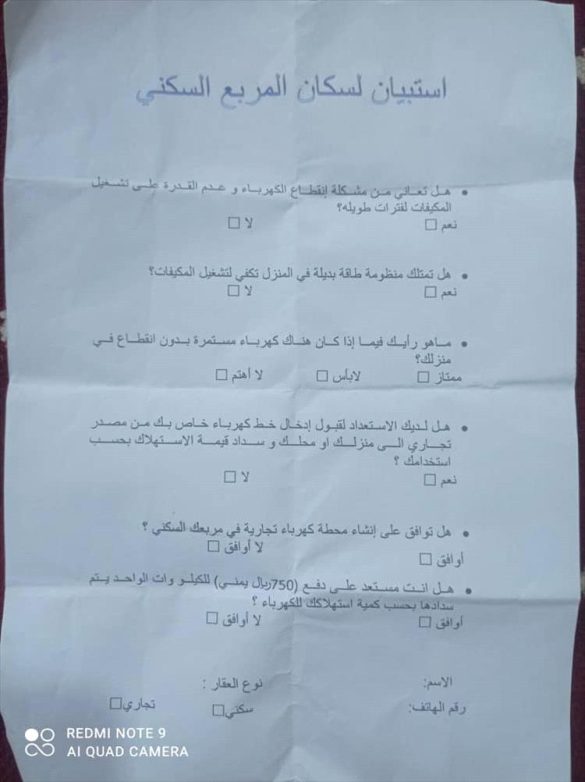 استبيان لسكان المربع السكني
• هل تعاني من مشكلة إنقطاع الكهرباء و عدم القدرة على تشغيل
المكيفات لفترات طويله؟
نعم □ لا □
• هل تمتلك منظومة طاقة بديلة في المنزل تكفي لتشغيل المكيفات؟
نعم □ لا □
• ماهو رأيك فيما إذا كان هناك كهرباء مستمرة بدون انقطاع في
منزلك؟
ممتاز □ لابأس □ لا أهتم □
• هل لديك الاستعداد لقبول إدخال خط كهرباء خاص بك من مصدر
تجاري الى منزلك او محلك و سداد قيمة الاستهلاك بحسب
استخدامك ؟
نعم □ لا □
• هل توافق على إنشاء محطة كهرباء تجارية في مربعك السكني ؟
أوافق □ لا أوافق □
• هل انت مستعد على دفع (750ريال يمني) للكيلو وات الواحد يتم
سدادها بحسب كمية استهلاكك للكهرباء ؟
أوافق □ لا أوافق □
الاسم: نوع العقار :
رقم الهاتف: سكني□ تجاري□
REDMI NOTE 9
AI QUAD CAMERA